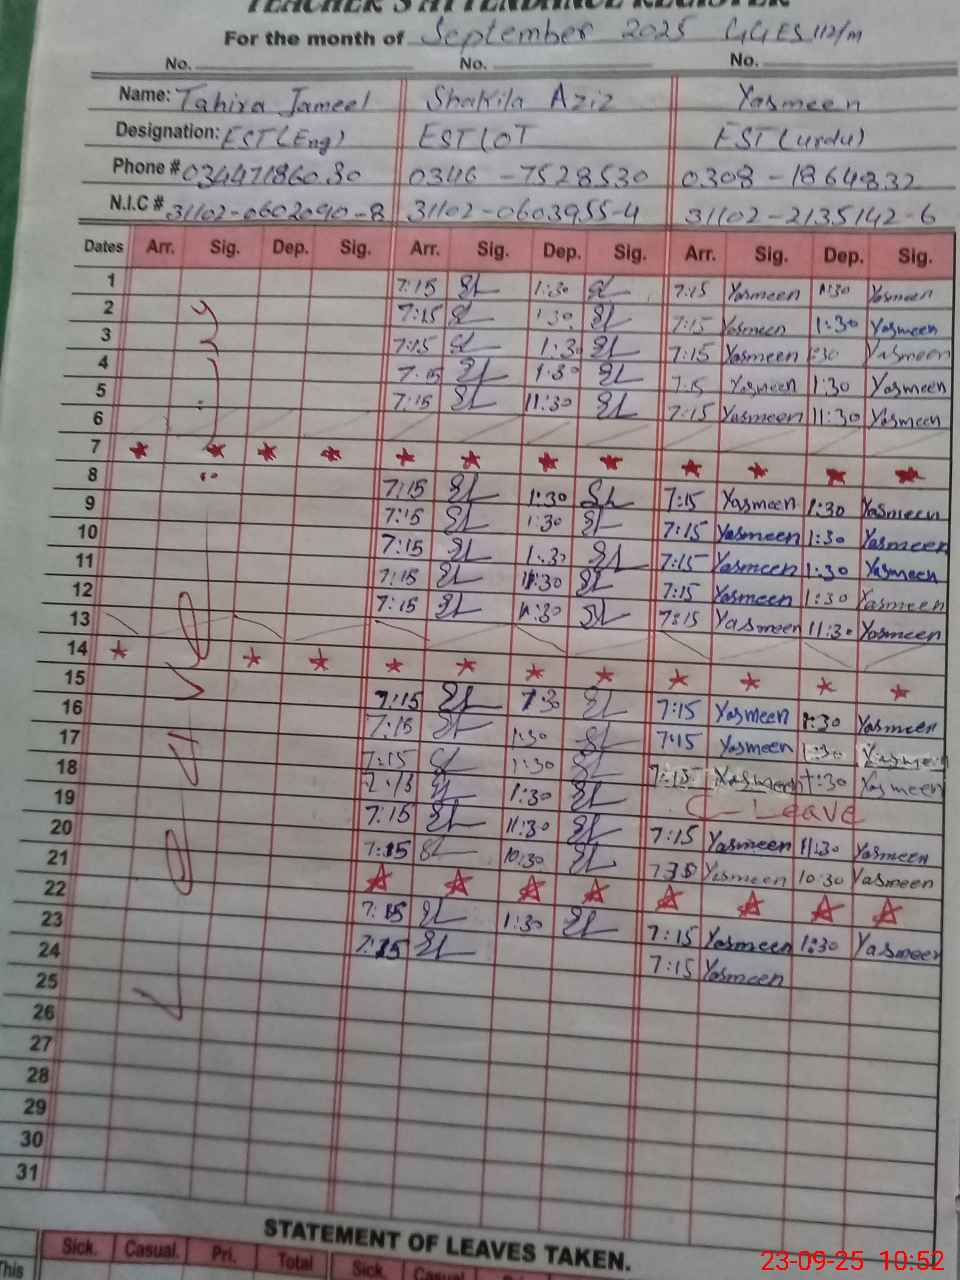 TEACHER'S ATTENDANCE REGISTER
For the month of September 2025 GGES 112/m
No. No. No.
Name: Tahira Jameel Shakila Aziz Yasmeen
Designation: EST(Eng) EST(OT EST(urdu)
Phone # 03447186030 0346-7528530 0308-1864832
N.I.C # 31102-0602090-8 31102-0603955-4 31102-2135142-6
Dates Arr. Sig. Dep. Sig. Arr. Sig. Dep. Sig. Arr. Sig. Dep. Sig.
1 7:15 1:30 7:15 Yasmeen 1:30 Yasmeen
2 7:15 1:30 7:15 Yasmeen 1:30 Yasmeen
3 7:15 1:30 7:15 Yasmeen 1:30 Yasmeen
4 7:15 1:30 7:15 Yasmeen 1:30 Yasmeen
5 7:15 11:30 7:15 Yasmeen 11:30 Yasmeen
6
7
8 7:15 1:30 7:15 Yasmeen 1:30 Yasmeen
9 7:15 1:30 7:15 Yasmeen 1:30 Yasmeen
10 7:15 1:30 7:15 Yasmeen 1:30 Yasmeen
11 7:15 1:30 7:15 Yasmeen 1:30 Yasmeen
12 7:15 11:30 7:15 Yasmeen 11:30 Yasmeen
13
14
15 7:15 1:30 7:15 Yasmeen 1:30 Yasmeen
16 7:15 1:30 7:15 Yasmeen 1:30 Yasmeen
17 7:15 1:30 7:15 Yasmeen 1:30 Yasmeen
18 1:30 C-Leave
19 7:15 11:30 7:15 Yasmeen 11:30 Yasmeen
20 7:15 10:30 Yasmeen 10:30 Yasmeen
21
22 7:15 1:30 7:15 Yasmeen 1:30 Yasmeen
23 7:15 7:15 Yasmeen
24
25
26
27
28
29
30
31
STATEMENT OF LEAVES TAKEN.
Sick. Casual. Pri. Total Sick. Casual
This
23-09-25 10:52